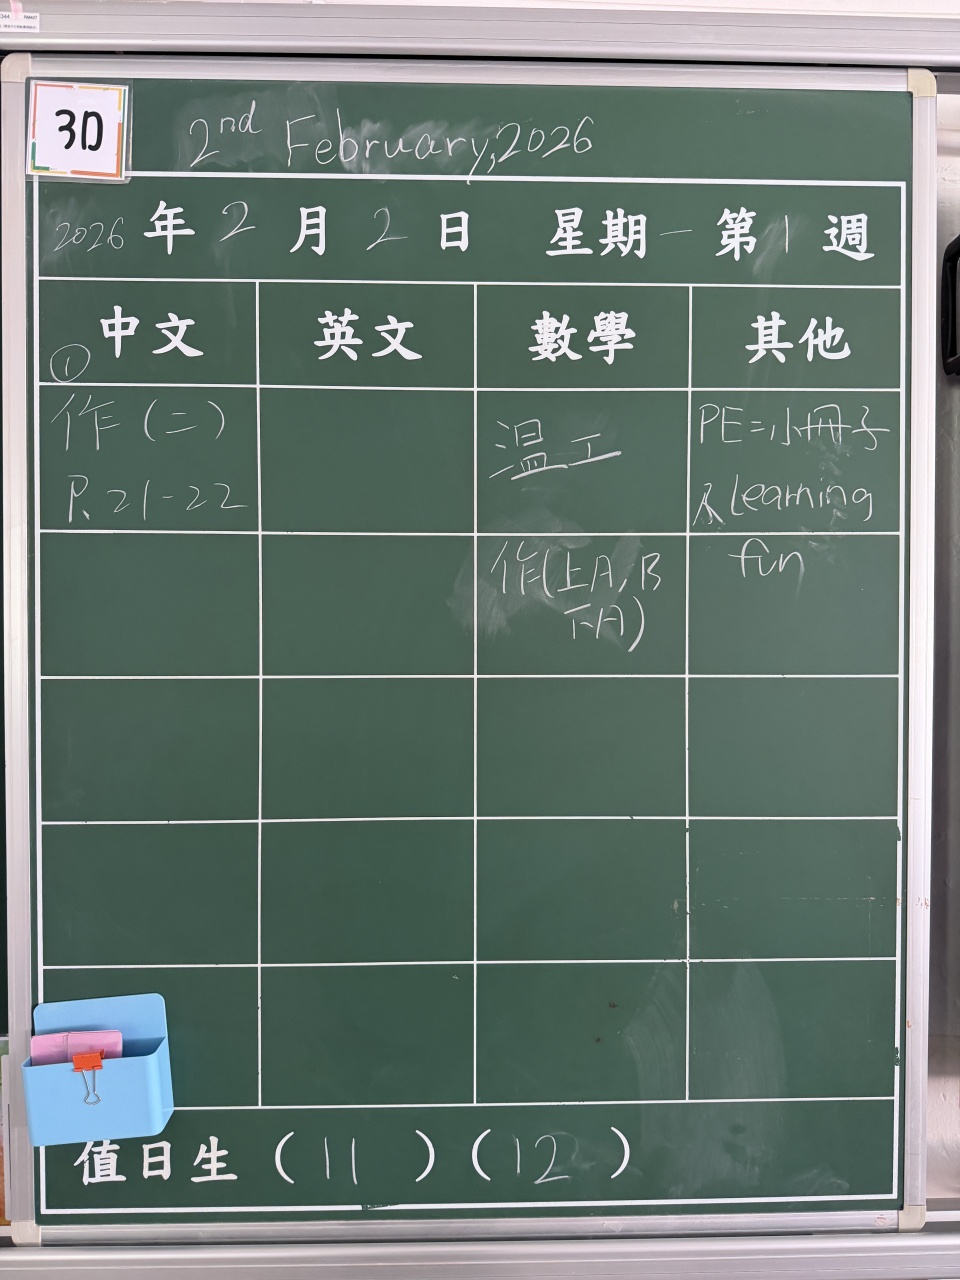 3D
2nd February, 2026
2026 年 2 月 2 日 星期一 第 1 週
① 中文 英文 數學 其他
作(二)
P. 21-22
溫工
作(上A, B
下A)
PE=小冊子
及Learning
fun
值日生 (11) (12)